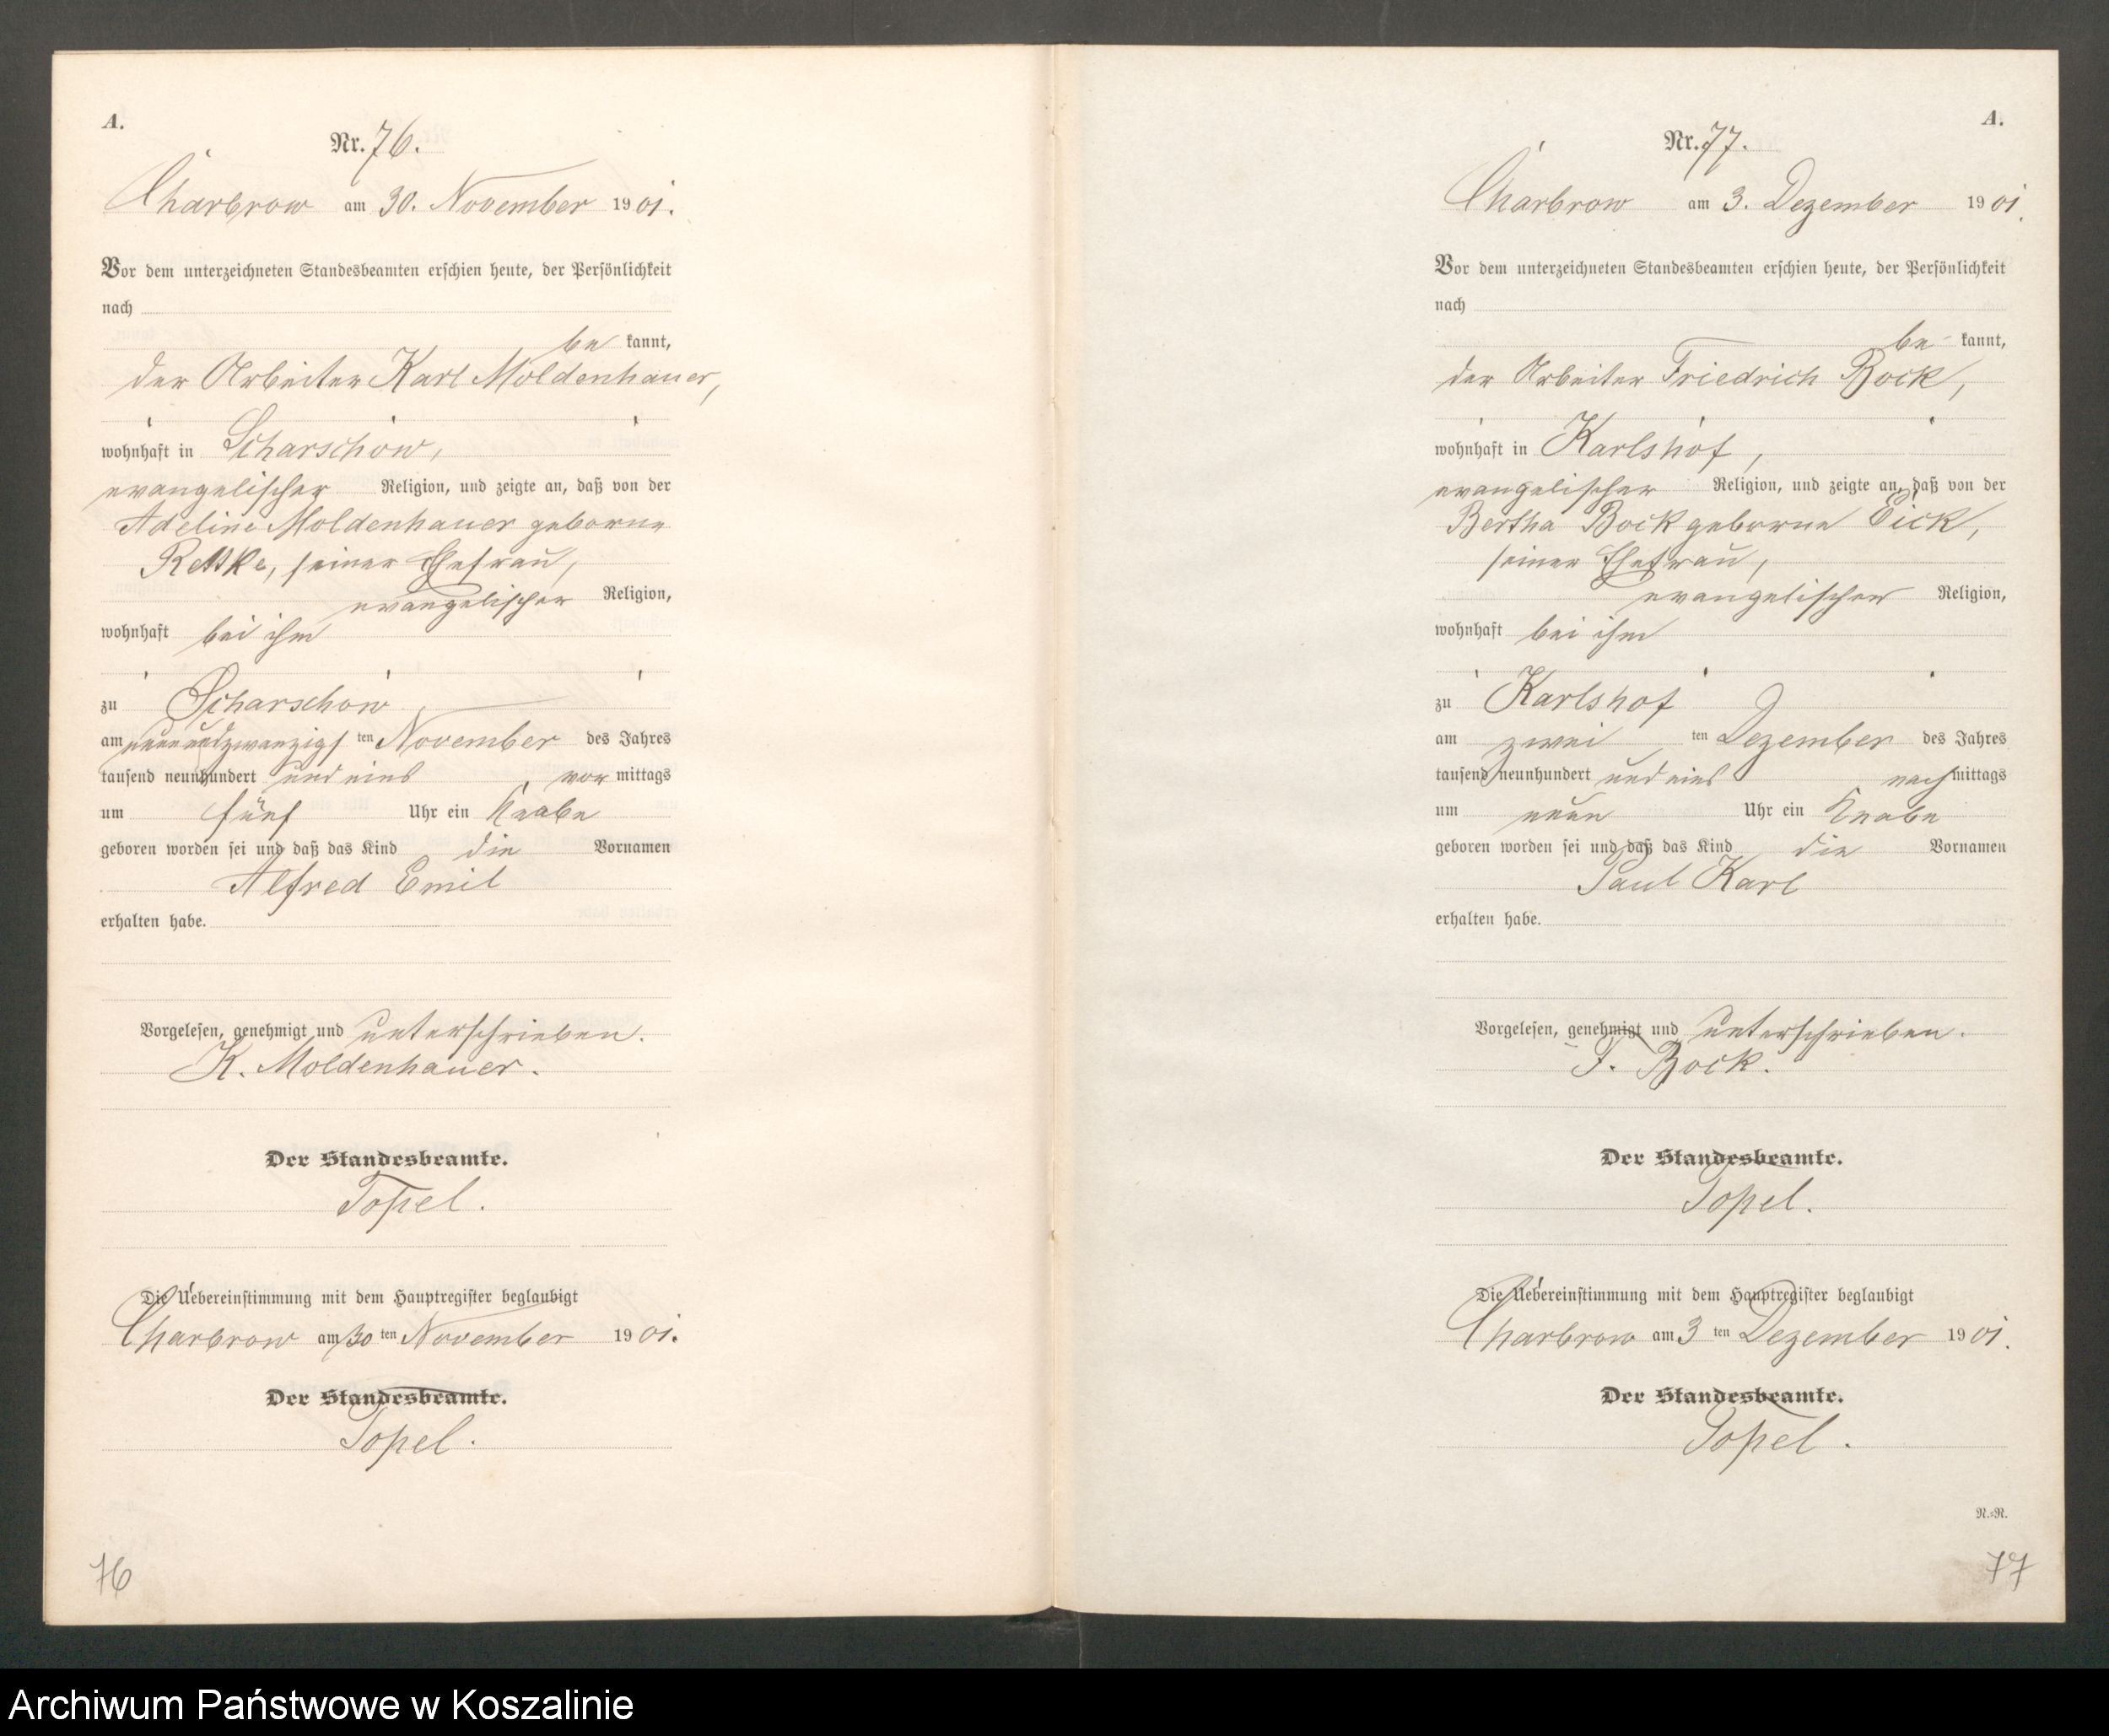 A.
Nr. 76.
Charbrow am 30. November 1901.
Vor dem unterzeichneten Standesbeamten erschien heute, der Persönlichkeit
nach
be kannt,
der Arbeiter Karl Moldenhauer,
wohnhaft in Scharschow,
evangelischer Religion, und zeigte an, daß von der
Adeline Moldenhauer geborne
seiner Ehefrau,
evangelischer Religion,
wohnhaft bei ihm
zu Scharschow
am neunundzwanzigs ten November des Jahres
tausend neunhundert und eins, vor mittags
um fünf Uhr ein Knabe
geboren worden sei und daß das Kind die Vornamen
Alfred Emil
erhalten habe.
Vorgelesen, genehmigt und unterschrieben.
K. Moldenhauer.
Der Standesbeamte.
Topel.
Die Uebereinstimmung mit dem Hauptregister beglaubigt
Charbrow am 30 ten November 1901.
Der Standesbeamte.
Topel.
76
A.
Nr. 77.
Charbrow am 3. Dezember 1901.
Vor dem unterzeichneten Standesbeamten erschien heute, der Persönlichkeit
nach
be kannt,
der Arbeiter Friedrich Bock,
wohnhaft in Karlshof,
evangelischer Religion, und zeigte an, daß von der
Bertha Bock geborne Eick,
seiner Ehefrau,
evangelischer Religion,
wohnhaft bei ihm
zu Karlshof
am zwei ten Dezember des Jahres
tausend neunhundert und eins nach mittags
um neun Uhr ein Knabe
geboren worden sei und daß das Kind die Vornamen
Paul Karl
erhalten habe.
Vorgelesen, genehmigt und unterschrieben.
F. Bock.
Der Standesbeamte.
Topel.
Die Uebereinstimmung mit dem Hauptregister beglaubigt
Charbrow am 3 ten Dezember 1901.
Der Standesbeamte.
Topel.
N.=N.
77
Archiwum Państwowe w Koszalinie